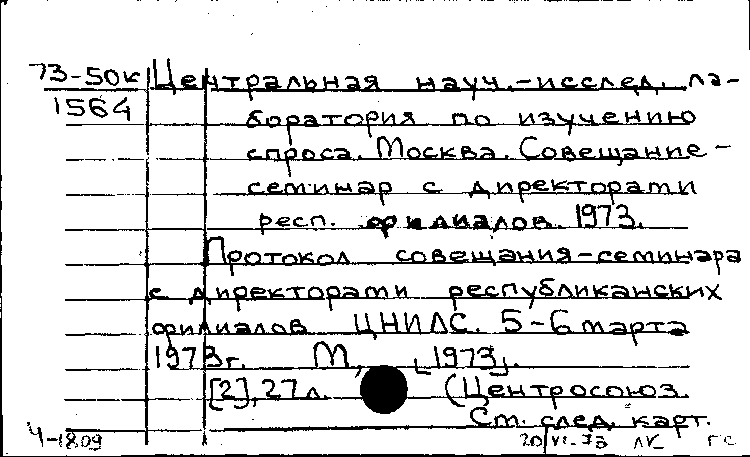 73-50к Центральная науч.-исслед. ла-
1564 боратория по изучению
спроса. Москва. Совещание-
семинар с директорами
респ. филиалов. 1973.
Протокол совещания-семинара
с директорами республиканских
филиалов ЦНИЛС. 5-6 марта
1973г. М., [1973].
[2], 27 л. (Центросоюз.
См. след. карт.
Ч-1809 20/VI-73 ЛК ГС